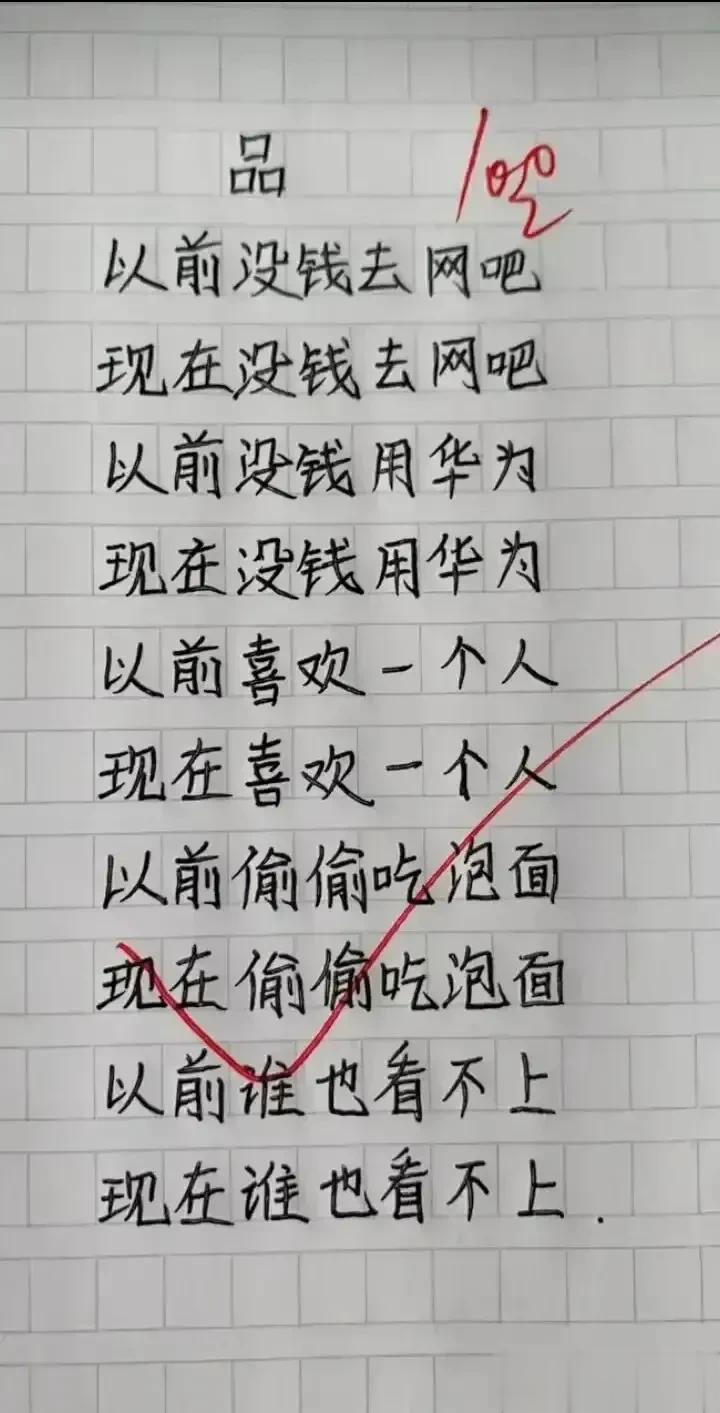 品
100
以前没钱去网吧
现在没钱去网吧
以前没钱用华为
现在没钱用华为
以前喜欢一个人
现在喜欢一个人
以前偷偷吃泡面
现在偷偷吃泡面
以前谁也看不上
现在谁也看不上.